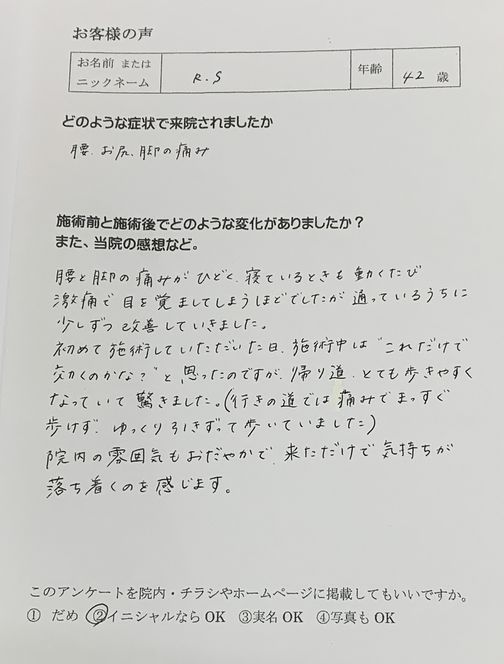 お客様の声
お名前 または
ニックネーム
R.S
年齢
42 歳
どのような症状で来院されましたか
腰、お尻、脚の痛み
施術前と施術後でどのような変化がありましたか？
また、当院の感想など。
腰と脚の痛みがひどく、寝ているときも動くたび
激痛で目を覚ましてしまうほどでしたが通っているうちに
少しずつ改善していきました。
初めて施術していただいた日、施術中は"これだけで
効くのかな？"と思ったのですが、帰り道、とても歩きやすく
なっていて驚きました。(行きの道では痛みでまっすぐ
歩けず、ゆっくり引きずって歩いていました)
院内の雰囲気もおだやかで、来ただけで気持ちが
落ち着くのを感じます。
このアンケートを院内・チラシやホームページに掲載してもいいですか。
① だめ ②イニシャルなら OK ③実名 OK ④写真も OK